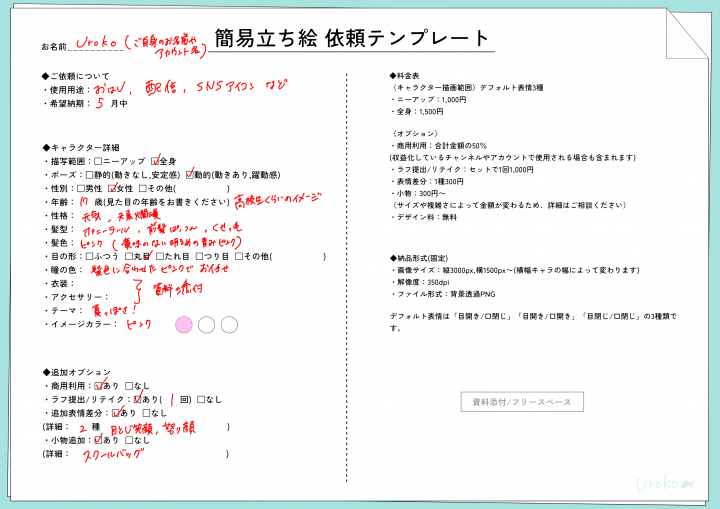 簡易立ち絵 依頼テンプレート
お名前 Uroko (ご自身のお名前やアカウント名)
◆ご依頼について
・使用用途：おはV, 配信, SNSアイコン など
・希望納期： 5 月中
◆キャラクター詳細
・描写範囲：□ニーアップ ☑全身
・ポーズ：□静的(動きなし,安定感) ☑動的(動きあり,躍動感)
・性別：□男性 ☑女性 □その他( )
・年齢： 17 歳(見た目の年齢をお書きください) 高校生くらいのイメージ
・性格： 元気, 天真爛漫
・髪型： ポニーテール, 前髪ぱっつん, くせっ毛
・髪色： ピンク (黄味のない明るめの青みピンク)
・目の形：□ふつう ☑丸目 □たれ目 □つり目 □その他( )
・瞳の色： 髪色に合わせたピンクでお任せ
・衣装：
・アクセサリー： 資料添付
・テーマ： 夏っぽさ!
・イメージカラー： ピンク
◆追加オプション
・商用利用：☑あり □なし
・ラフ提出/リテイク：☑あり( 1 回) □なし
・追加表情差分：☑あり □なし
(詳細： 2 種 目とじ笑顔, 怒り顔 )
・小物追加：☑あり □なし
(詳細： スクールバッグ )
◆料金表
（キャラクター描画範囲）デフォルト表情3種
・ニーアップ：1,000円
・全身：1,500円
（オプション）
・商用利用：合計金額の50％
(収益化しているチャンネルやアカウントで使用される場合も含まれます)
・ラフ提出/リテイク：セットで1回1,000円
・表情差分：1種300円
・小物：300円～
（サイズや複雑さによって金額が変わるため、詳細はご相談ください）
・デザイン料：無料
◆納品形式(固定)
・画像サイズ：縦3000px,横1500px～(横幅キャラの幅によって変わります)
・解像度：350dpi
・ファイル形式：背景透過PNG
デフォルト表情は「目開き/口閉じ」「目開き/口開き」「目閉じ/口閉じ」の3種類で
す。
資料添付/フリースペース
Uroko